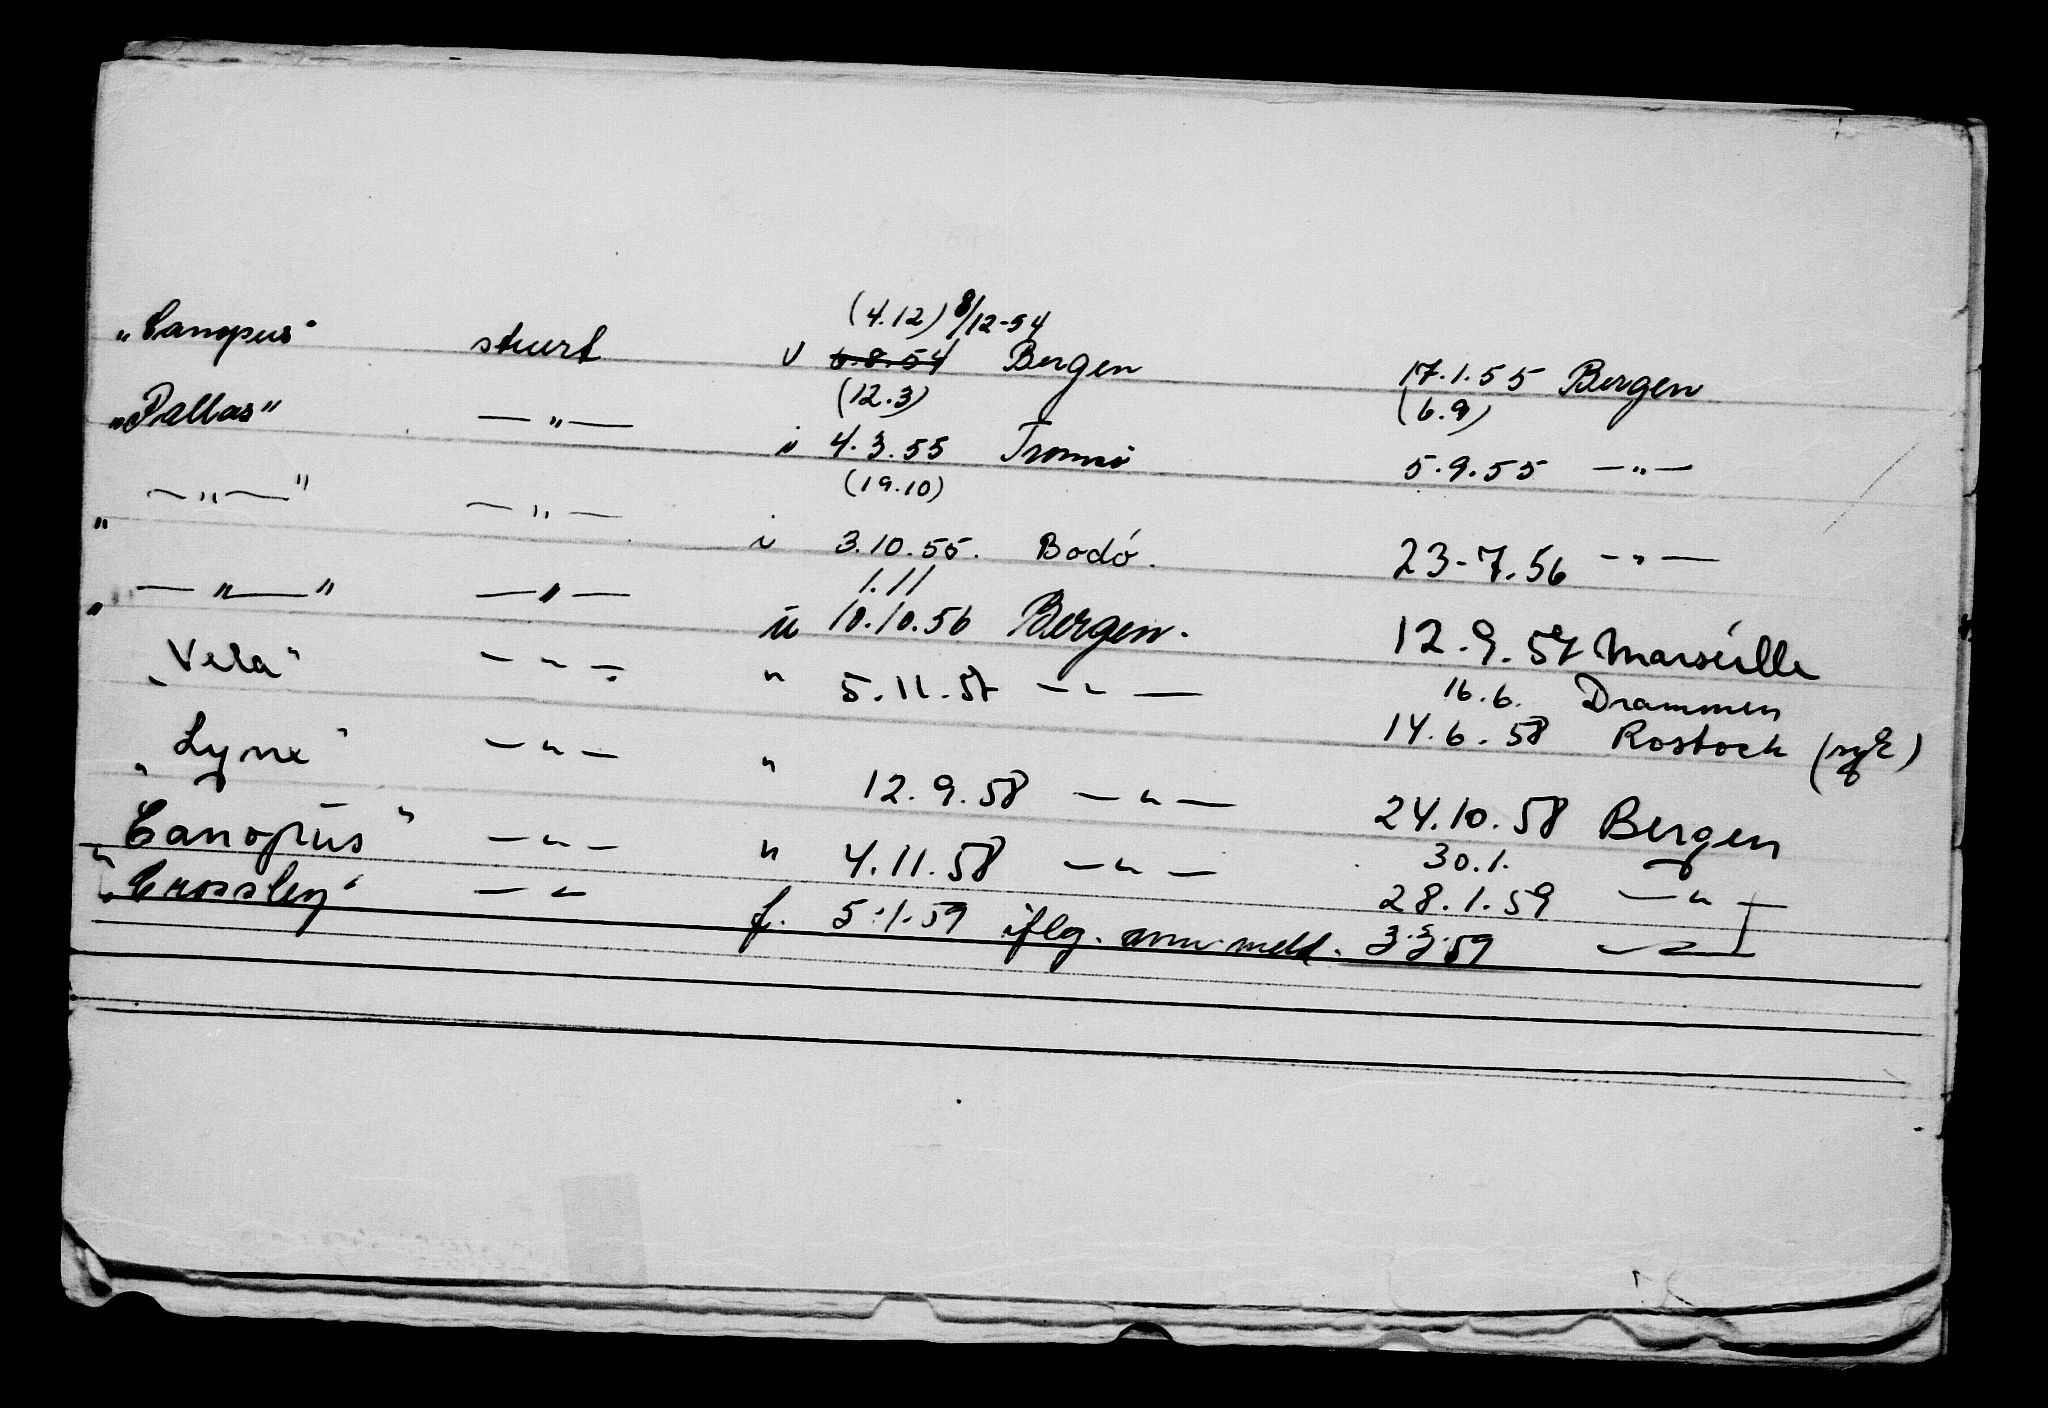 (4.12) 8/12-54
„Canopus“ stuert v 6.8.54 Bergen 17.1.55 Bergen
(12.3) (6.9)
„Pallas“ —„— i 4.3.55 Tromsö 5.9.55 —„—
(19.10)
„ —„—“ —„— i 3.10.55. Bodö. 23-7.56 —„—
1.11
„ —„—“ —„— u 10.10.56 Bergen. 12.9.57 Marseille
„Vela“ —„— „ 5.11.57 —„— 16.6. Drammen
14.6.58 Rostock (syk)
„Lynx“ —„— „ 12.9.58 —„— 24.10.58 Bergen
30.1.
„Canopus“ —„— „ 4.11.58 —„— 28.1.59 —„—
„Crossley“ —„ f. 5.1.59 iflg. meld. 3.3.59 —„—